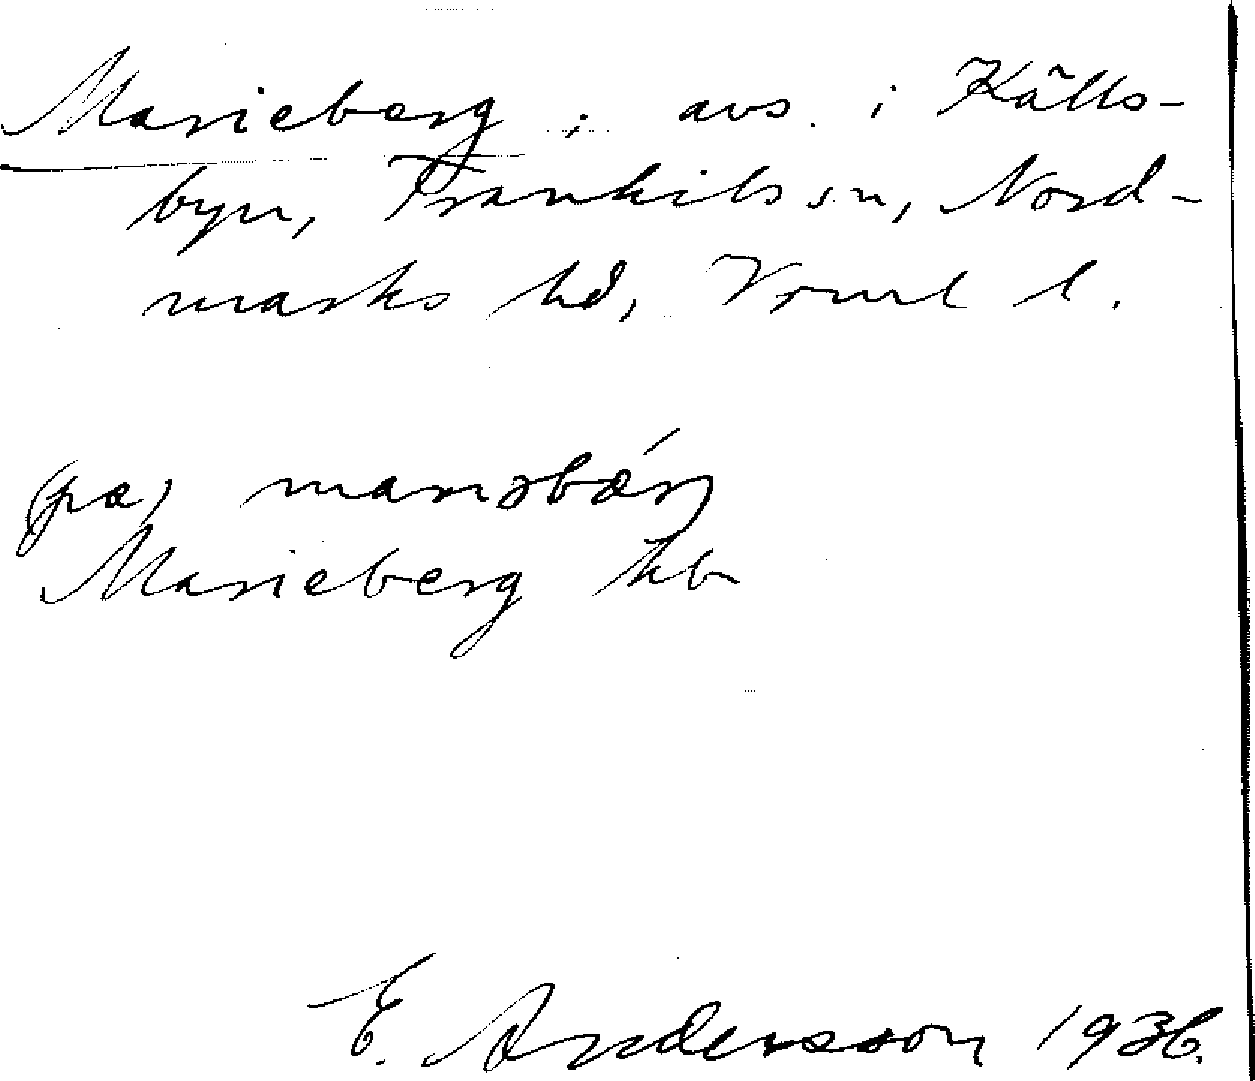 Marieberg ; avs. i Källs-
byn, Trankils sn, Nord-
marks hd, Vrml l.
(pæ) marɩəbærj
Marieberg kb
E. Andersson 1936.